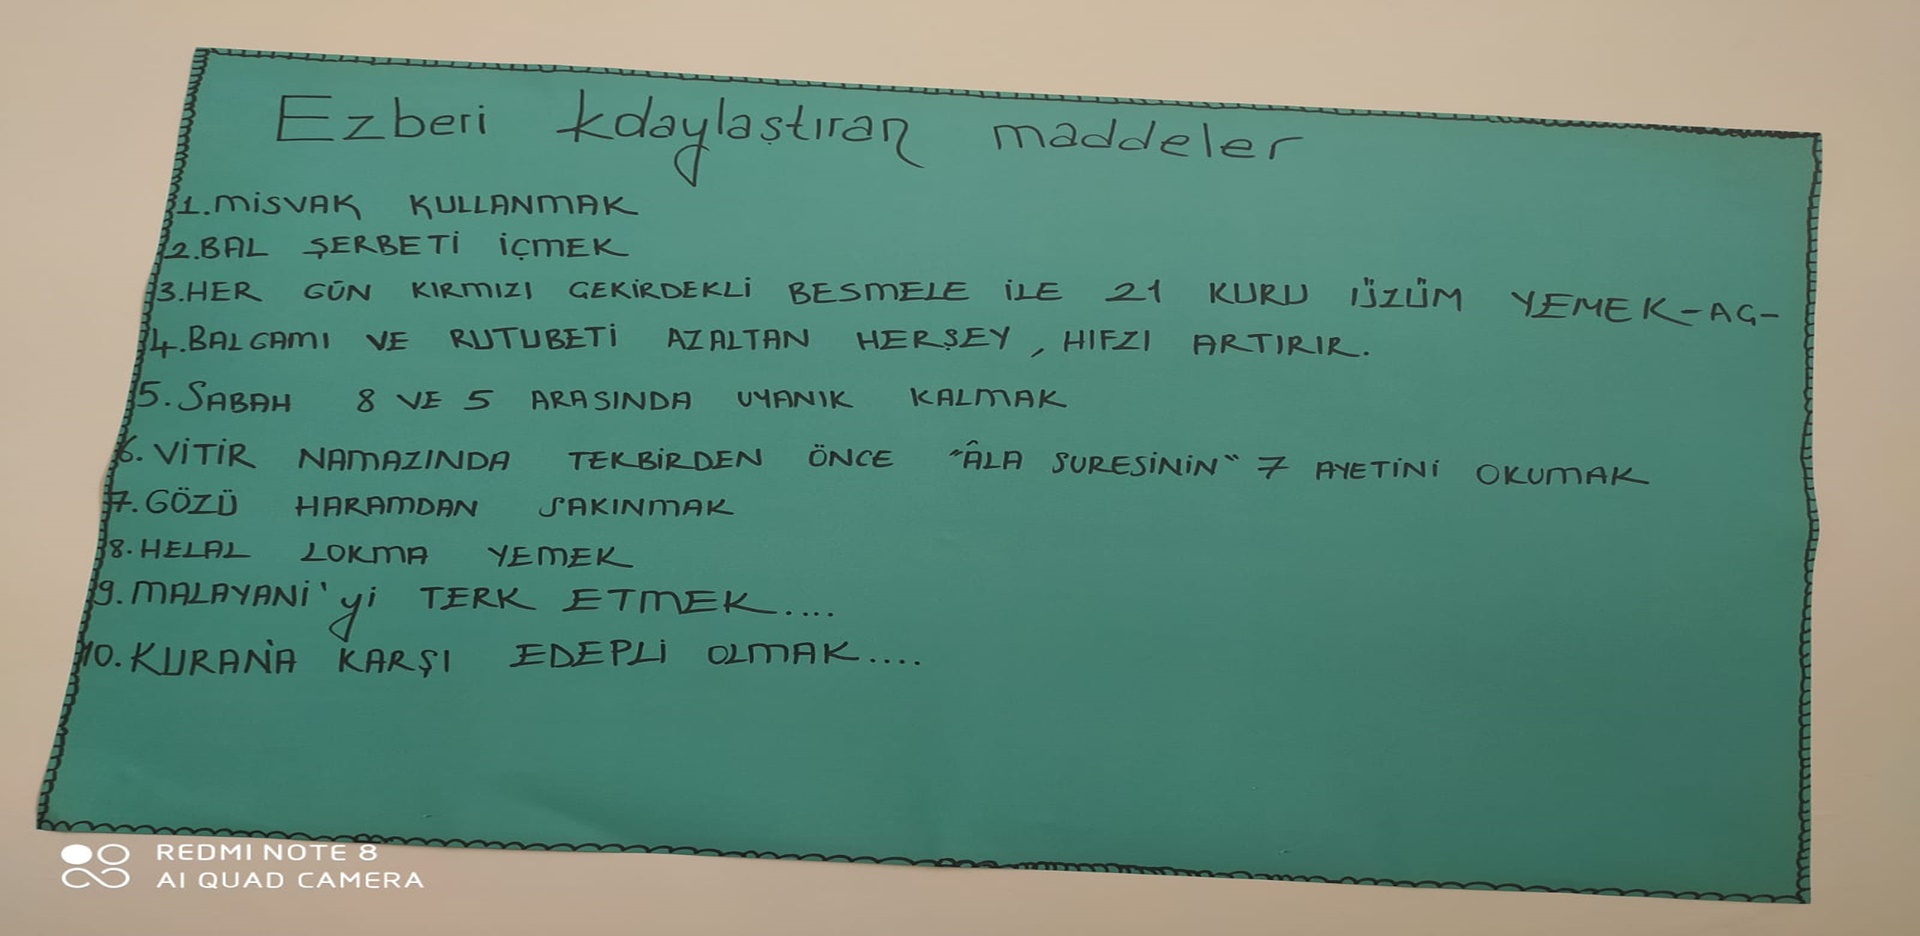 Ezberi kdaylaştıran maddeler
1.MİSVAK KULLANMAK
2.BAL ŞERBETİ İÇMEK
3.HER GÜN KIRMIZI GEKİRDEKLİ BESMELE İLE 21 KURU ÜZÜM YEMEK-AG-
4.BALGAMI VE RUTUBETİ AZALTAN HERŞEY, HIFZI ARTIRIR.
5.SABAH 8 VE 5 ARASINDA UYANIK KALMAK
6.VİTİR NAMAZINDA TEKBİRDEN ÖNCE "ÂLA SURESİNİN" 7 AYETİNİ OKUMAK
7.GÖZÜ HARAMDAN SAKINMAK
8.HELAL LOKMA YEMEK
9.MALAYANİ'yi TERK ETMEK....
10.KURAN'A KARŞI EDEPLİ OLMAK....
REDMI NOTE 8
AI QUAD CAMERA